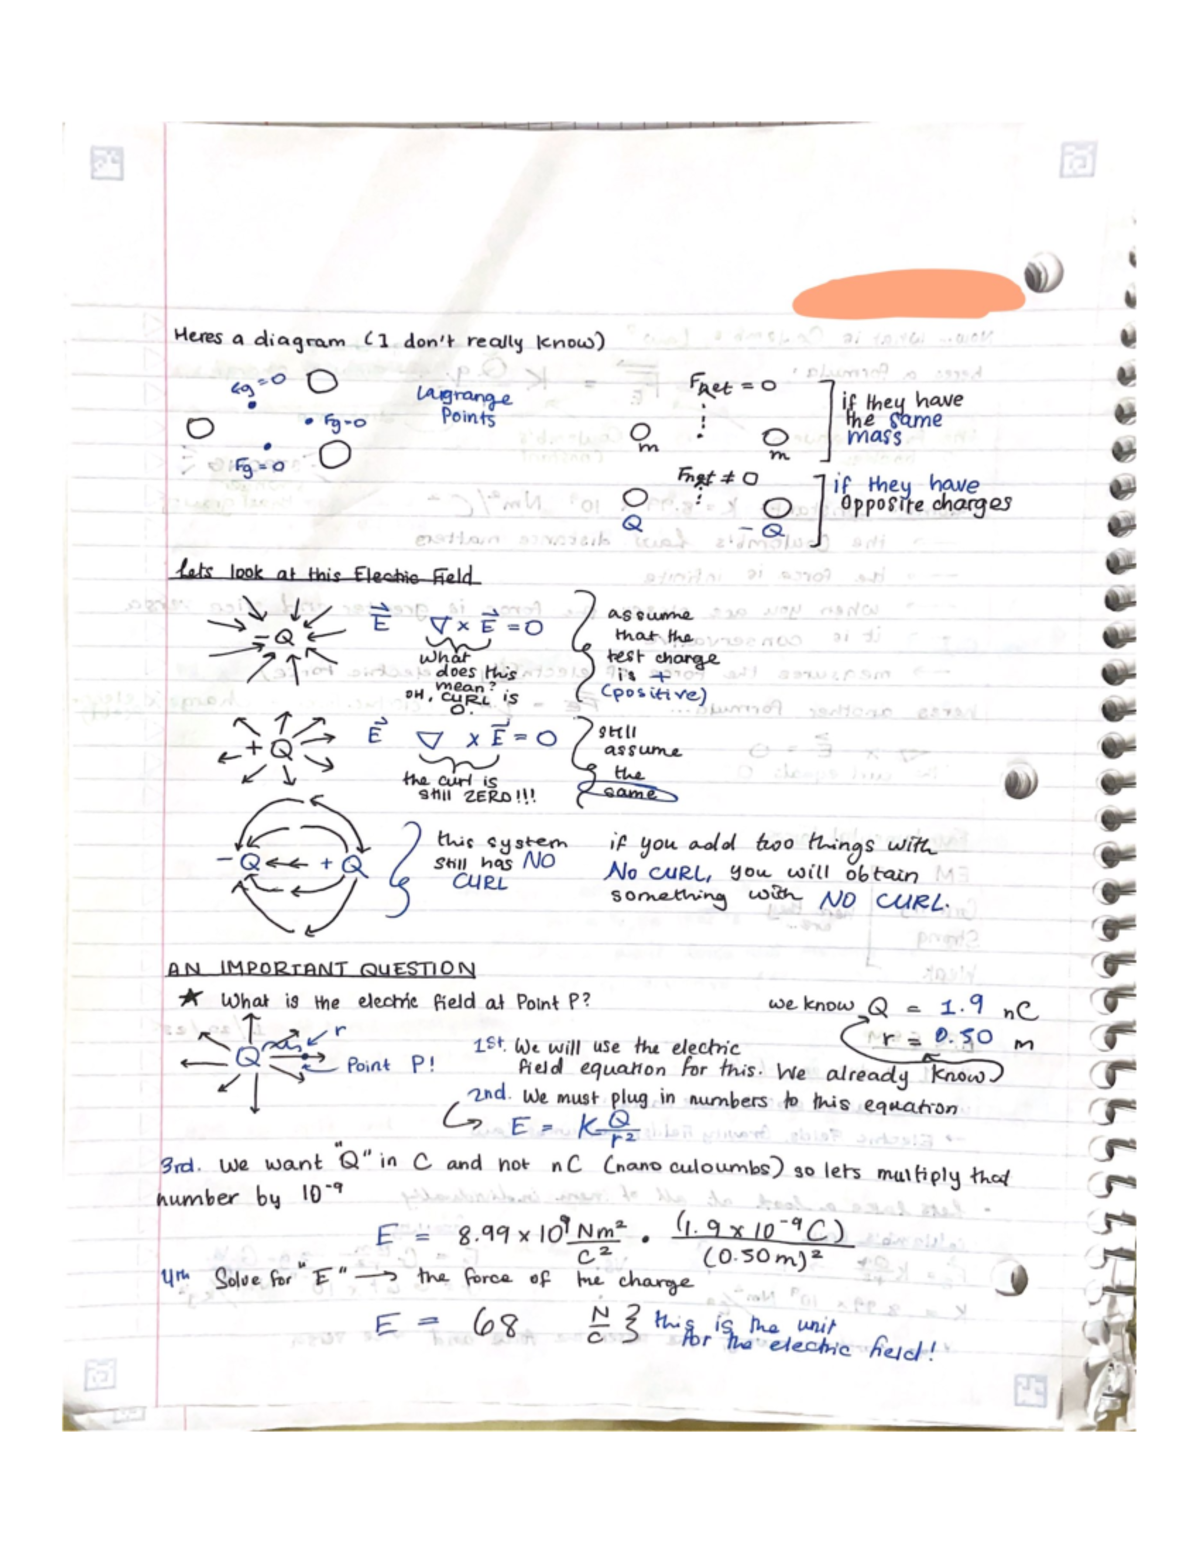 Heres a diagram (I don't really know)
Fg=0
Fg=0
Fg=0
Lagrange
Points
Fnet = 0
m
m
if they have
the same
mass
Fnet ≠ 0
Q
- Q
if they have
opposite charges
Lets look at this Electric Field
- Q
E⃗ ∇ × E⃗ = 0
what
does this
mean?
OH, CURL is
0.
assume
that the
test charge
is +
(positive)
+ Q
E⃗ ∇ × E⃗ = 0
the curl is
still ZERO!!!
still
assume
the
same
- Q + Q
this system
still has NO
CURL
if you add two things with
No CURL, you will obtain
something with NO CURL.
AN IMPORTANT QUESTION
★ What is the electric field at Point P?
we know Q = 1.9 nC
r = 0.50 m
r
Q
Point P!
1st. We will use the electric
field equation for this. We already know
2nd. We must plug in numbers to this equation
E = K Q/r²
3rd. We want "Q" in C and not nC (nano culoumbs) so lets multiply that
number by 10⁻⁹
E = 8.99 × 10⁹ Nm²/C² • (1.9 × 10⁻⁹ C)/(0.50m)²
4th Solve for "E" → the force of the charge
E = 68 N/C } this is the unit
for the electric field!